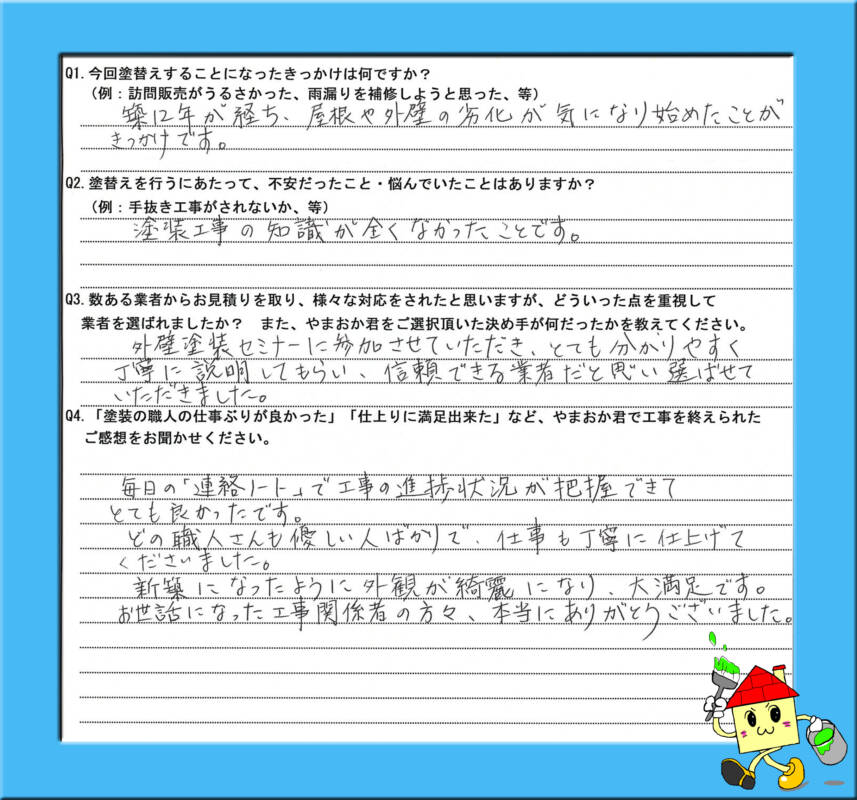 Q1. 今回塗替えすることになったきっかけは何ですか？
（例：訪問販売がうるさかった、雨漏りを補修しようと思った、等）
築12年が経ち、屋根や外壁の劣化が気になり始めたことが
きっかけです。
Q2. 塗替えを行うにあたって、不安だったこと・悩んでいたことはありますか？
（例：手抜き工事がされないか、等）
塗装工事の知識が全くなかったことです。
Q3. 数ある業者からお見積りを取り、様々な対応をされたと思いますが、どういった点を重視して
業者を選ばれましたか？　また、やまおか君をご選択頂いた決め手が何だったかを教えてください。
外壁塗装セミナーに参加させていただき、とても分かりやすく
丁寧に説明してもらい、信頼できる業者だと思い選ばせて
いただきました。
Q4. 「塗装の職人の仕事ぶりが良かった」「仕上りに満足出来た」など、やまおか君で工事を終えられた
ご感想をお聞かせください。
毎日の「連絡ノート」で工事の進捗状況が把握できて
とても良かったです。
どの職人さんも優しい人ばかりで、仕事も丁寧に仕上げて
くださいました。
新築になったように外観が綺麗になり、大満足です。
お世話になった工事関係者の方々、本当にありがとうございました。